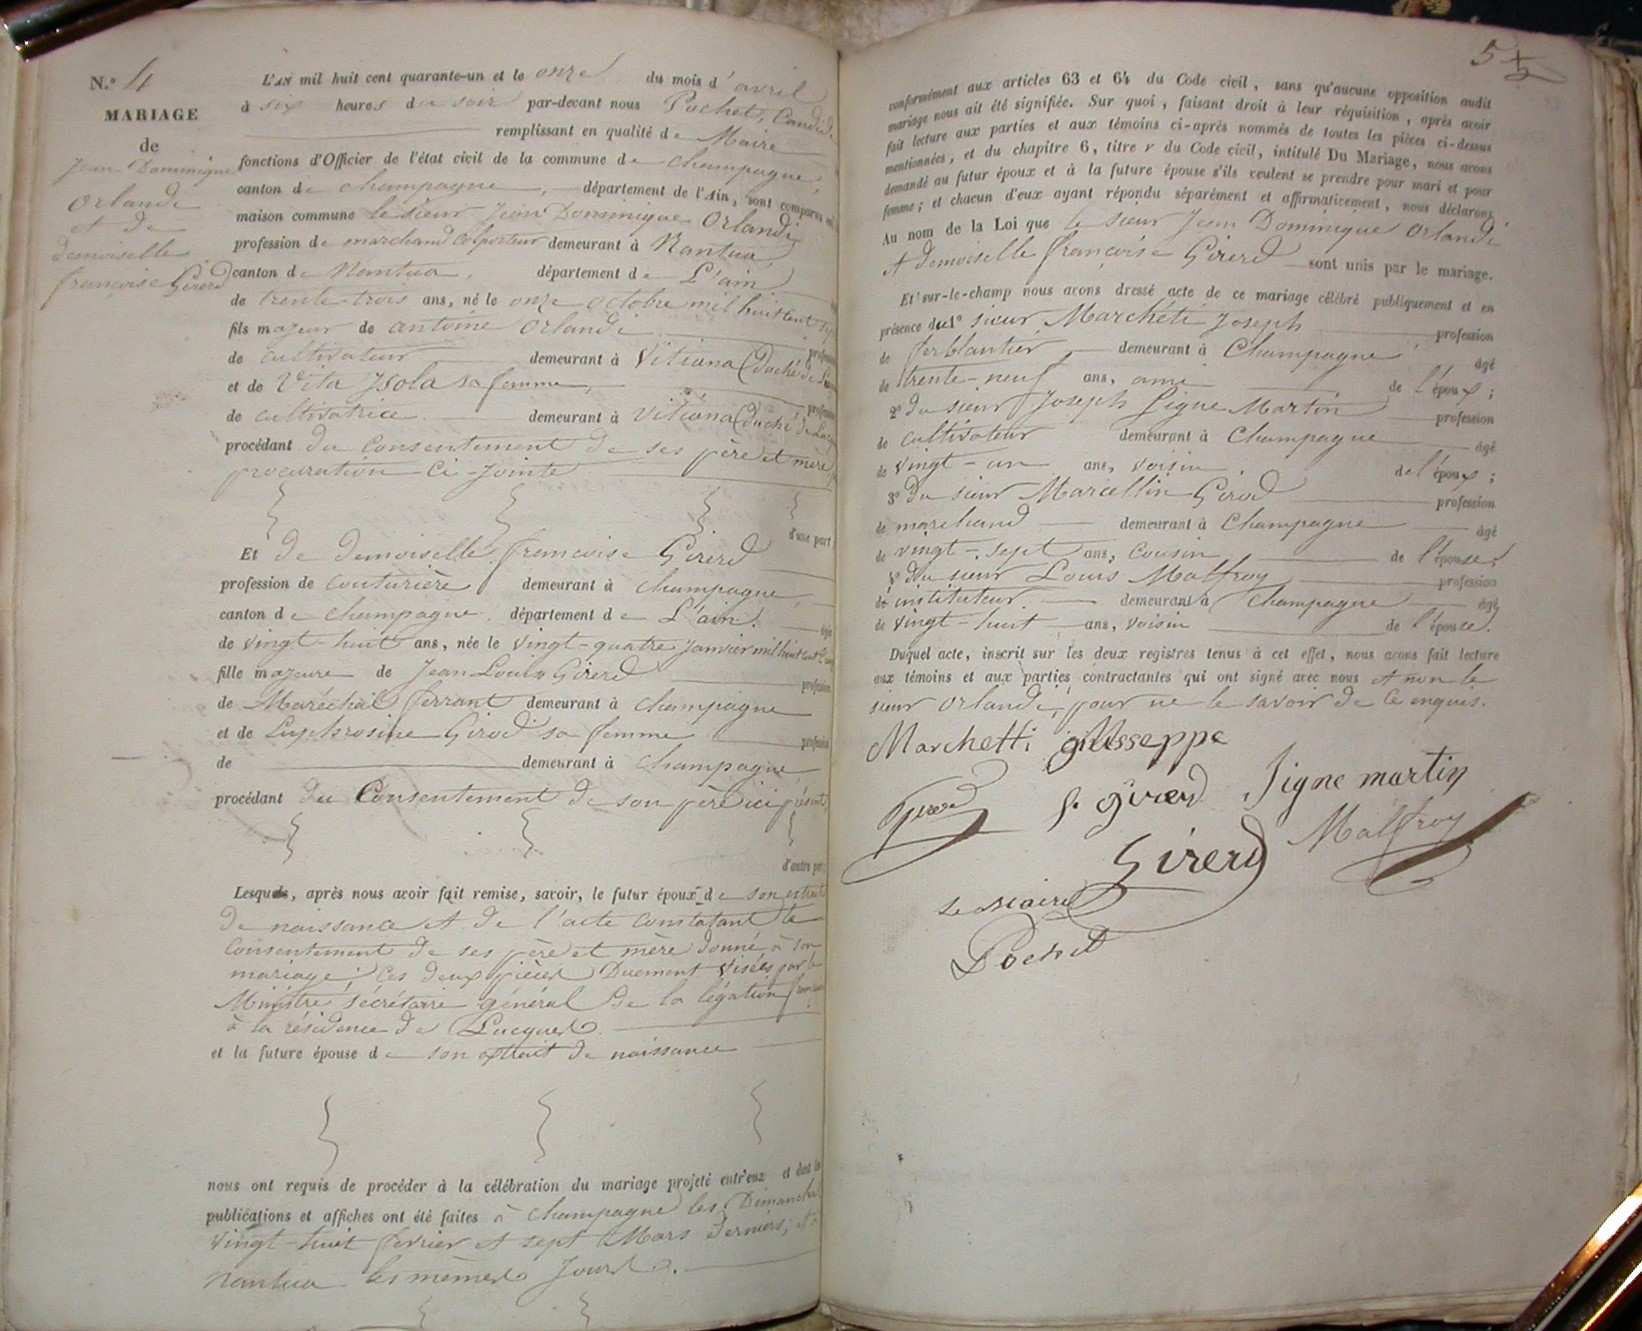 N.º 4
MARIAGE
de
Jean Dominique
Orlandi
et de
demoiselle
françoise Girerd
L'AN mil huit cent quarante-un et le onze du mois d'avril
à six heures du soir par-devant nous Pochet, Candide
remplissant en qualité de Maire
fonctions d'Officier de l'état civil de la commune de champagne,
canton de champagne, département de l'Ain, sont comparus en
maison commune le sieur Jean Dominique Orlandi
profession de marchand colporteur demeurant à Nantua,
canton de Nantua, département de L'ain
de trente-trois ans, né le onze octobre mil huit cent
fils majeur de antoine Orlandi
profession
de cultivateur demeurant à Vitiana (duché de
et de Vita Isola sa femme,
profession
de cultivatrice demeurant à Vitiana (duché de
procédant du consentement de ses père et mère
procuration ci-jointe
d'une part
Et de demoiselle françoise Girerd
profession de couturière demeurant à champagne,
canton de champagne, département de L'ain.
de vingt-huit ans, née le vingt-quatre janvier mil huit cent
fille majeure de Jean Louis Girerd
profession
de Maréchal ferrant demeurant à champagne
et de Euphrosine Girod sa femme
profession
de demeurant à Champagne
procédant du Consentement de son père ici présent
d'autre part
Lesquels, après nous avoir fait remise, savoir, le futur époux de son extrait
de naissance et de l'acte constatant le
consentement de ses père et mère donné à son
mariage; ces deux pièces Duement visées par le
Ministre sécrétaire général de la légation
à la résidence de Lucques.
et la future épouse de son extrait de naissance
nous ont requis de procéder à la célébration du mariage projeté entr'eux et dont les
publications et affiches ont été faites à champagne les Dimanches
vingt-huit février et sept Mars derniers, et à
nantua les mêmes Jours.
5
conformément aux articles 63 et 64 du Code civil, sans qu'aucune opposition audit
mariage nous ait été signifiée. Sur quoi, faisant droit à leur réquisition, après avoir
fait lecture aux parties et aux témoins ci-après nommés de toutes les pièces ci-dessus
mentionnées, et du chapitre 6, titre v du Code civil, intitulé Du Mariage, nous avons
demandé au futur époux et à la future épouse s'ils veulent se prendre pour mari et pour
femme; et chacun d'eux ayant répondu séparément et affirmativement, nous déclarons
Au nom de la Loi que le sieur Jean Dominique Orlandi
et demoiselle françoise Girerd sont unis par le mariage.
Et sur-le-champ nous avons dressé acte de ce mariage célébré publiquement et en
présence du 1º sieur Marchéti Joseph
profession
de ferblantier demeurant à Champagne,
âgé
de trente-neuf ans, ami de l'époux;
2º du sieur Joseph Signe Martin
profession
de cultivateur demeurant à Champagne
âgé
de vingt-un ans, voisin, de l'époux;
3º du sieur Marcellin Girod
profession
de marchand demeurant à Champagne
âgé
de vingt-sept ans, cousin de l'épouse;
4º du sieur Louis Malfroy
profession
de instituteur. demeurant à Champagne
âgé
de vingt-huit ans, voisin de l'épouse.
Duquel acte, inscrit sur les deux registres tenus à cet effet, nous avons fait lecture
aux témoins et aux parties contractantes qui ont signé avec nous et non le
sieur Orlandi, pour ne le savoir de ce enquis.
Marchetti giusseppe
Girod f. girerd Signe martin
Girerd Malfroy
Le Maire
Pochet